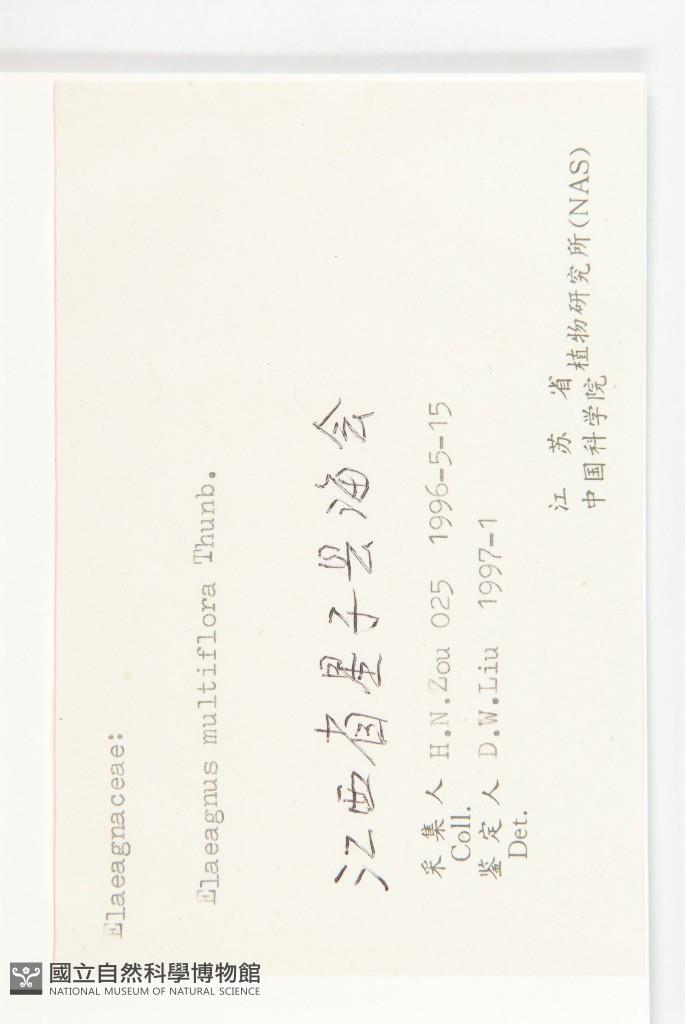 Elaeagnaceae:
Elaeagnus multiflora Thunb.
江西省星子县海会
采集人 H.N.Zou 025 1996-5-15
Coll.
鉴定人 D.W.Liu 1997-1
Det.
江苏省
中国科学院植物研究所(NAS)
國立自然科學博物館
NATIONAL MUSEUM OF NATURAL SCIENCE